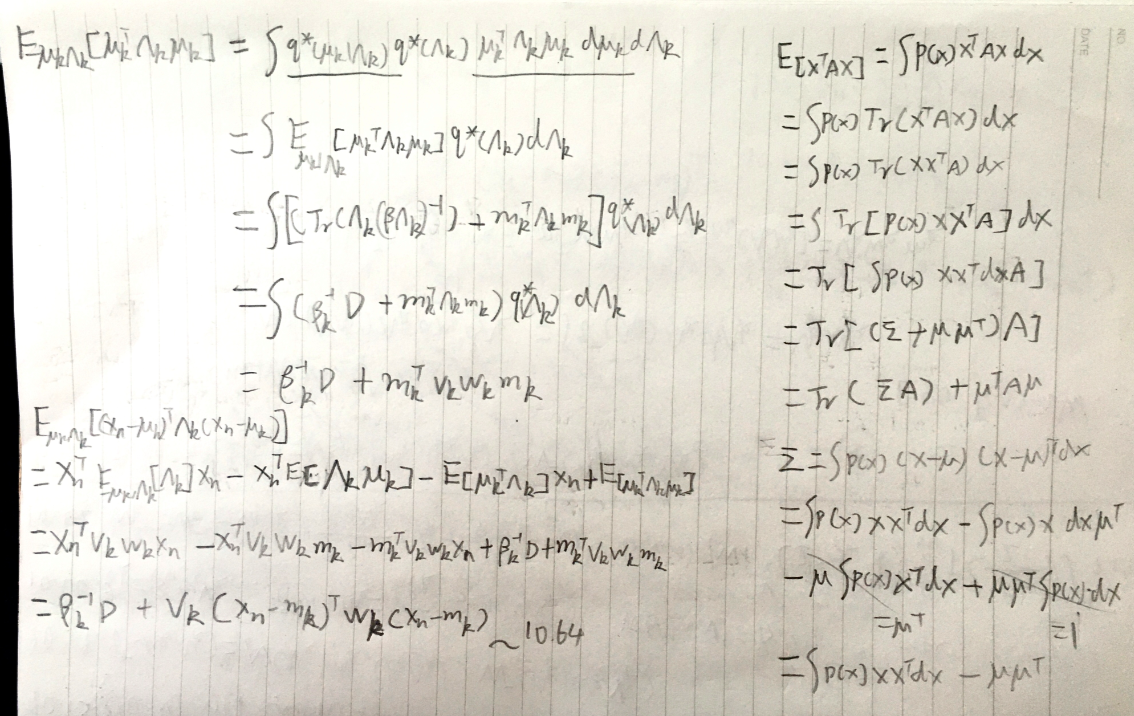 E_{μ_kΛ_k}[μ_k^T Λ_k μ_k] = ∫ q*(μ_k|Λ_k) q*(Λ_k) μ_k^T Λ_k μ_k dμ_k dΛ_k
= ∫ E_{μ_k|Λ_k}[μ_k^T Λ_k μ_k] q*(Λ_k) dΛ_k
= ∫ [(Tr(Λ_k(βΛ_k)^{-1}) + m_k^T Λ_k m_k] q*(Λ_k) dΛ_k
= ∫ (β_k^{-1} D + m_k^T Λ_k m_k) q*(Λ_k) dΛ_k
= β_k^{-1} D + m_k^T ν_k W_k m_k
E_{μ_kΛ_k}[(x_n-μ_k)^T Λ_k (x_n-μ_k)]
= x_n^T E_{μ_kΛ_k}[Λ_k] x_n - x_n^T E[Λ_k μ_k] - E[μ_k^T Λ_k] x_n + E[μ_k^T Λ_k μ_k]
= x_n^T ν_k W_k x_n - x_n^T ν_k W_k m_k - m_k^T ν_k W_k x_n + β_k^{-1} D + m_k^T ν_k W_k m_k
= β_k^{-1} D + ν_k (x_n-m_k)^T W_k (x_n-m_k) ~ 10.64
E[x^T A x] = ∫ p(x) x^T A x dx
= ∫ p(x) Tr(x^T A x) dx
= ∫ p(x) Tr(x x^T A) dx
= ∫ Tr[p(x) x x^T A] dx
= Tr[∫ p(x) x x^T dx A]
= Tr[(Σ + μμ^T) A]
= Tr(ΣA) + μ^T A μ
Σ = ∫ p(x) (x-μ)(x-μ)^T dx
= ∫ p(x) x x^T dx - ∫ p(x) x dx μ^T
- μ ∫ p(x) x^T dx + μμ^T ∫ p(x) dx
= μ^T = 1
= ∫ p(x) x x^T dx - μμ^T
NO
DATE